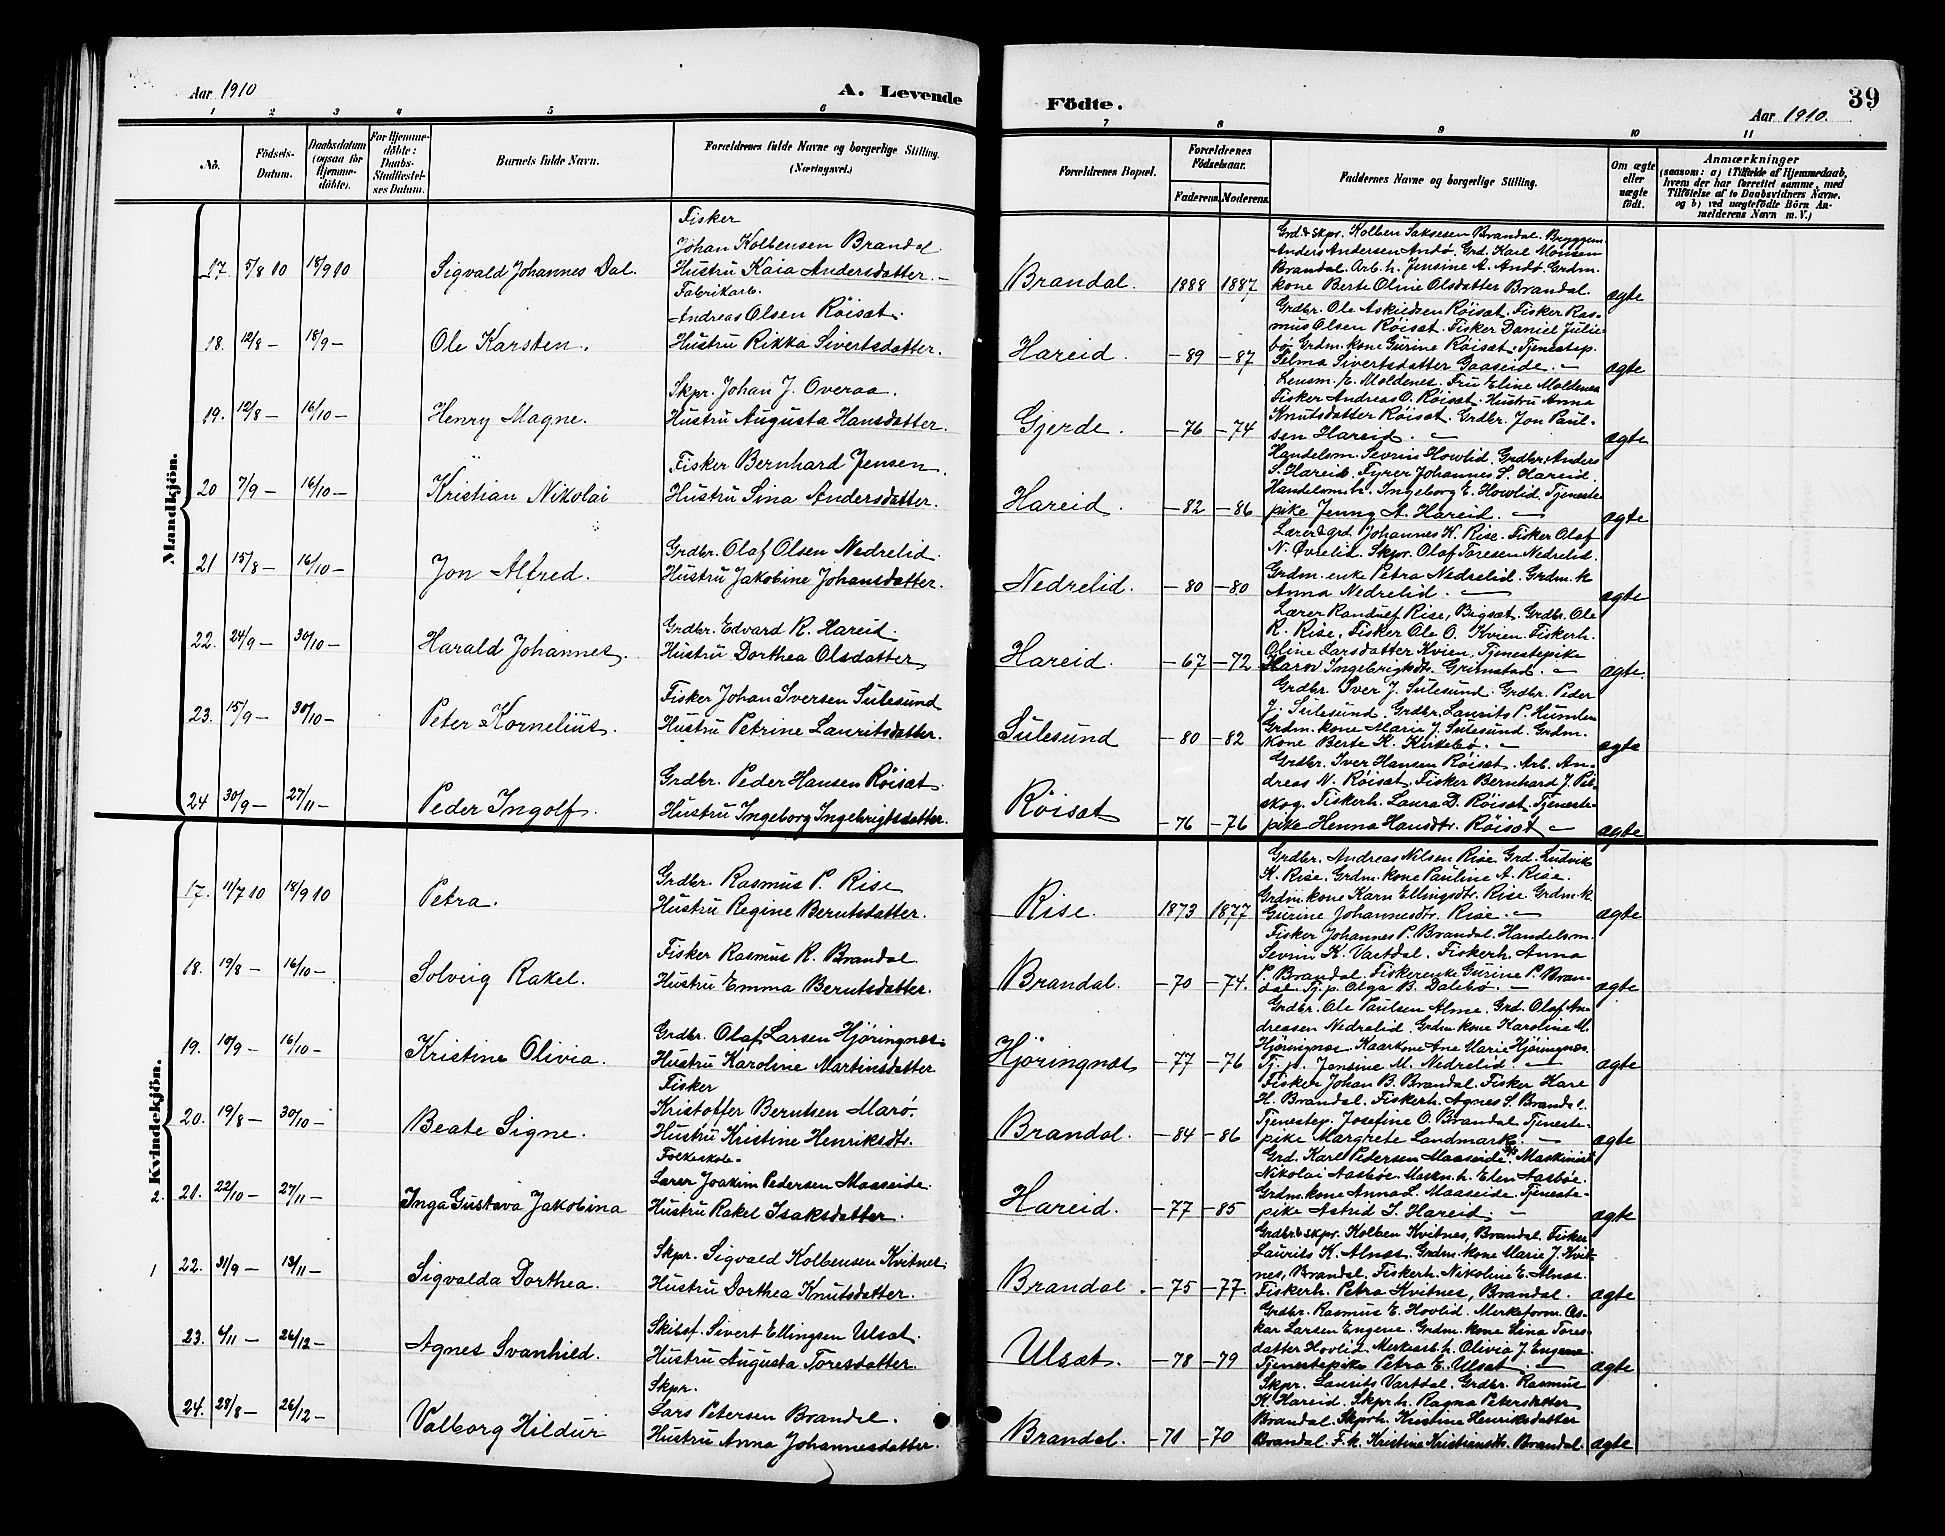 Aar 1910
A. Levende
Födte.
Aar 1910.
39
1 2 3 4 5 6 7 8 9 10 11
No.
Födsels-Datum.
Daabsdatum (ogsaa for Hjemme-döbte).
For Hjemme-döbte: Daabs-Stadfæstel-ses Datum.
Barnets fulde Navn.
Forældrenes fulde Navne og borgerlige Stilling. (Næringsvei.)
Forældrenes Bopæl.
Forældrenes Födselsaar.
Faderens. Moderens.
Faddernes Navne og borgerlige Stilling.
Om ægte eller uægte födt.
Anmærkninger
(saasom: a) i Tilfælde af Hjemmedaab, hvem der har forrettet samme, med Tilföielse af to Daabsvidners Navne. og b) ved uægtefödte Börn An-melderens Navn m. V.)
Mandkjön.
17. 5/8 10 18/9 10 Sigvald Johannes Dal.
Fisker
Johan Kolbensen Brandal
Hustru Kaia Andersdatter. —
Brandal. 1888 1887
Grd & Skpr. Kolben Saksesen Brandal. Bryggem.
Anders Andersen Andø. Grd. Karl Monsen
Brandal. Arb. h. Jensine A. Andø. Grdm.
kone Berte Oline Olsdatter Brandal.
ægte
18. 12/8 — 18/9 — Ole Karsten.
Fabrikarb.
Andreas Olsen Röisat.
Hustru Rikka Sivertsdatter.
Hareid. — 89 — 87
Grdbr. Ole Askildsen Röisat. Fisker Ras-
mus Olsen Röisat. Fisker Daniel Julie-
bö. Grdm. kone Gurine Röisat. Tjenestep.
Selma Sivertsdatter Gaaseide. —
ægte
19. 12/8 — 16/10 — Henry Magne.
Skpr. Johan J. Overaa.
Hustru Augusta Hansdatter.
Gjerde. — 76 — 74
Lensm. E. Moldenes. Fru Eline Moldenes
Fisker Andreas O. Röisat. Hustru Anna
Knutsdatter Röisat. Grdbr. Jon Paul-
sen Hareid. —
ægte
20 7/9 — 16/10 — Kristian Nikolai
Fisker Bernhard Jensen.
Hustru Sina Andersdatter.
Hareid. — 82 — 86
Handelsm. Sevrin Hovlid. Grdbr. Anders
S. Hareid. Fyrer Johannes L. Hareid.
Handelsm. h. Ingeborg E. Hovlid. Tjeneste-
pike Jenny A. Hareid. —
ægte
21 15/8 — 16/10 — Jon Alfred.
Grdbr. Olaf Olsen Nedrelid.
Hustru Jakobine Johansdatter.
Nedrelid. — 80 — 80
Lærer & grd. Johannes K. Rise. Fisker Olaf
N. Øvrelid. Skpr. Olaf Toresen Nedrelid.
Grdm. enke Petra Nedrelid. Grdm. k
Anna Nedrelid. —
ægte
22. 24/9 — 30/10 — Harald Johannes.
Grdbr. Edvard R. Hareid.
Hustru Dorthea Olsdatter
Hareid. — 67 — 72
Lærer Randulf Rise, Bigsat. Grdbr. Ole
R. Rise. Fisker Ole O. Kvien. Fiskerh.
Oline Larsdatter Kvien. Tjenestepike
Karn Ingebrigtsdtr. Grimstad. —
ægte
23. 15/9 — 30/10 — Peter Kornelius.
Fisker Johan Iversen Sulesund
Hustru Petrine Lauritsdatter.
Sulesund — 80 — 82
Grdbr. Iver J. Sulesund. Grdbr. Peder
J. Sulesund. Grdbr. Laurits P. Humlen
Grdm. kone Marie J. Sulesund. Grdm.
kone Berte K. Kirkebø. —
ægte
24 30/9 — 27/11 — Peder Ingolf.
Grdbr. Peder Hansen Röisat
Hustru Ingeborg Ingebrigtsdatter.
Röisat — 76 — 76
Grdbr. Iver Hansen Röisat. Arb. An-
dreas N. Röisat. Fisker Bernhard J. Pil-
skog. Fiskerh. Laura D. Röisat. Tjeneste-
pike Henna Hansdtr. Röisat —
ægte
Kvindekjön.
17. 11/7 10 18/9 10 Petra.
Grdbr. Rasmus P. Rise
Hustru Regine Berntsdatter.
Rise. 1873 1877
Grdbr. Andreas Nilsen Rise. Grd. Ludvik
K. Rise. Grdm. kone Pauline A. Rise.
Grdm. kone Karn Ellingsdtr. Rise. Grdm. k.
Gurine Johannesdtr. Rise. —
ægte
18. 19/8 — 16/10 — Solveig Rakel.
Fisker Rasmus R. Brandal
Hustru Emma Berntsdatter.
Brandal. — 70 — 74.
Fisker Johannes P. Brandal. Handelsm.
Sevrin K. Vartdal. Fiskerh. Anna
P. Brandal. Fiskerenke Gurine P. Bran-
dal. Tj. p. Olga B. Dalebø. —
ægte
19. 10/9 — 16/10 — Kristine Olivia.
Grdbr. Olaf Larsen Hjöringnes.
Hustru Karoline Martinsdatter
Hjöringnes — 77 — 76
Grdbr. Ole Paulsen Alme. Grd. Olaf An-
dreassen Nedrelid. Grdm. kone Karoline M.
Hjöringnes. Kaarkone Ane Marie Hjöringnes.
Tj. p. Jensine M. Nedrelid. —
ægte
20. 19/8 — 30/10 — Beate Signe.
Fisker
Kristoffer Berntsen Marö.
Hustru Kristine Henriksdtr.
Brandal. — 84 — 86
Fisker Johan B. Brandal. Fisker Kare
H. Brandal. Fiskerh. Agnes S. Brandal.
Tjenestep. Josefine O. Brandal. Tjeneste-
pike Margrete Landmark. —
ægte
2 21. 22/10 — 27/11 — Inga Gustava Jakobina
Folkeskole-
Lærer Joakim Pedersen Maaseide.
Hustru Rakel Isaksdatter.
Hareid. — 77 — 85
Grd. Karl Pedersen Maaseide. Maskinist
Nikolai Aasböe. Maskn. h. Elen Aasböe.
Grdm. kone Anna L. Maaseide. Tjeneste-
pike Astrid I. Hareid. —
ægte
1 22. 31/9 — 13/11 — Sigvalda Dorthea.
Skpr. Sigvald Kolbensen Kvitnes
Hustru Dorthea Knutsdatter.
Brandal. — 75 — 77.
Grdbr & skpr. Kolben Kvitnes, Brandal. Fisker
Laurits K. Alnes. Grdm. kone Marie J. Kvit-
nes, Brandal. Fiskerh. Nikoline E. Alnes.
Fiskerh. Petra Kvitnes, Brandal.
ægte
23. 6/11 — 26/12 — Agnes Svanhild.
Skibsf. Sivert Ellingsen Ulsat.
Hustru Augusta Toresdatter
Ulsat. — 78 — 79
Grdbr. Rasmus E. Hovlid. Merkeform. Os-
kar Larsen Engene. Grdm. kone Lina Tores-
datter Hovlid. Merkearb. h. Olivia J. Engene
Tjenestepike Petra E. Ulsat. —
ægte
24. 28/8 — 26/12 — Valborg Hildur
Skpr.
Lars Petersen Brandal.
Hustru Anna Johannesdatter.
Brandal. — 71 — 70
Skpr. Laurits Vartdal. Grdbr. Rasmus
K. Hareid. Skpr h. Ragna Petersdatter
Brandal. Skprh. Kristine Henriksdatter
Brandal. F. k. Kristine Kristiansdtr. Brandal.
ægte